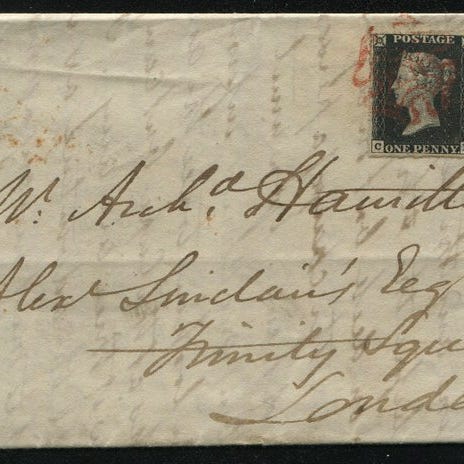 POSTAGE
C
ONE PENNY
Mr. Archd. Hamilt
Alexr Sinclair's Esq
Trinity Squ
Londo